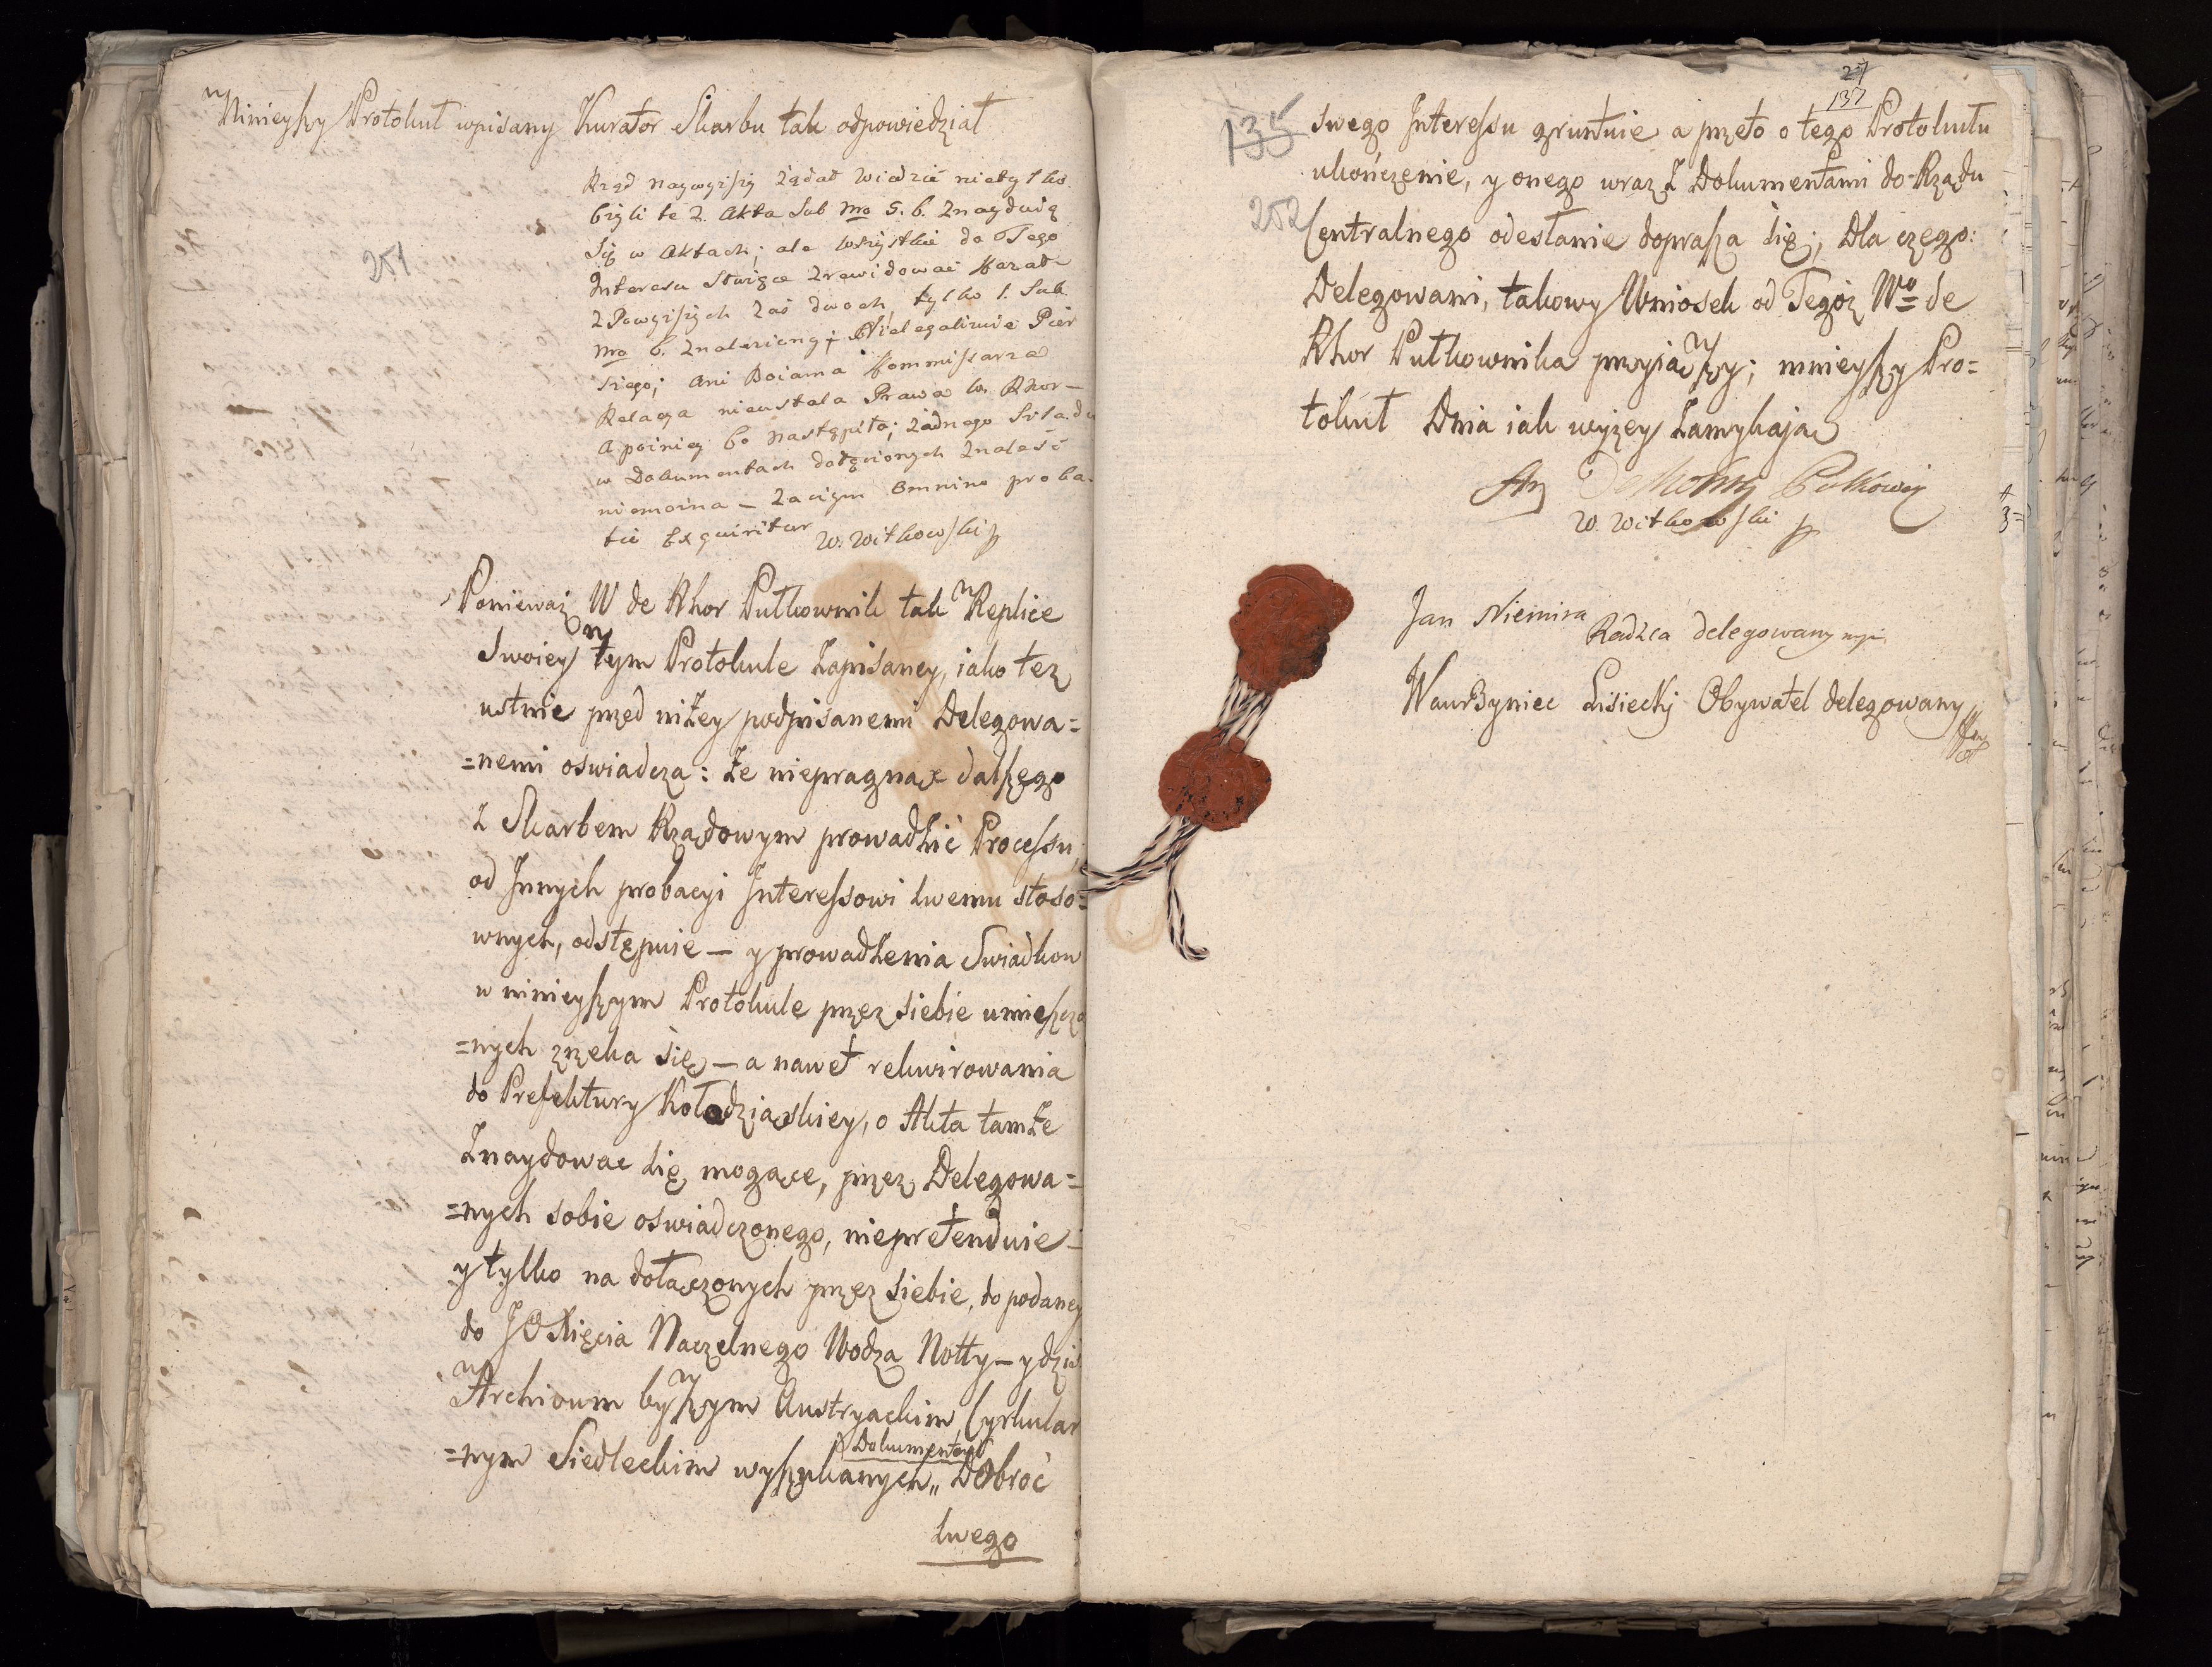 w Ninieyszy Protokuł wpisany Kurator Skarbu tak odpowiedział
251
Rząd naywyiszy żądał wiedzić nietylko
bżyli te 2. Akta Sub Nro 5. 6. Znayduią
się w Aktach; ale wszystkie do Tego
Interesu Służące Zrewidować kazał
z Powyiszych zaś dwoch, tylko 1. Sub
Nro 6. Znaleziony;
siego; ani Kommissarza
Relacya nieustala Prawa W. Khor-
a poiniey bo nastąpiło; żadnego Szladu
w Dokumentach dołączonych Znaleść
niemoina – Zaczym Omnino proba-
tio Exquiritur W. Witkowski
Ponieważ W de Khor Pułkownik tak w Replice
Swoiey w tym Protokule Zapisaney, iako też
ustnie przed niżey podpisanemi Delegowa=
=nemi oswiadcza: że niepragnąc dalszego
z Skarbem Rządowym prowadzić Processu,
od Innych probacyi Interessowi swemu stoso=
wnych, odstępuie – y prowadzenia Swiadkow
w ninieyszym Protokule przez siebie umieszczo
=nych zrzeka się – a nawet rekwirowania
do Prefektury Kołodziaskiey, o Akta tamże
Znaydowac się mogące, przez Delegowa=
=nych sobie oswiadczonego, niepretenduie –
y tylko na dołączonych przez siebie, do podaney
do JO Xięcia Naczelnego Wodza Notty – y dziś
w Archivum byłszym Austryackim Cyrkular
=nym Siedleckim wyszukanych „ Dokumentach Dobroć
swego
27
137
135
swego Interessu gruntuie a przeto o tego Protokułu
ukończenie, y onego wraz z Dokumentami do Rządu
252
Centralnego odesłanie doprasza się; Dla czego:
Delegowani, takowy Wniosek od Tegoż Wo de
Khor Pułkownika przyiąwszy; ninieyszy Pro=
tokuł Dnia iak wyżey Zamykaią
W. Witkowski
Jan Niemira
Radzca delegowany mpi
Wawrzyniec Lisiecki Obywatel delegowany